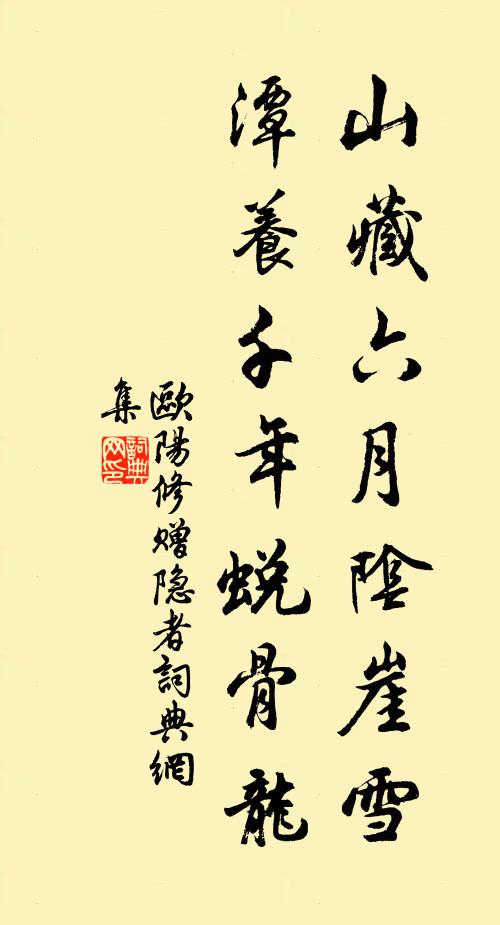 山藏六月陰崖雪
潭養千年蛻骨龍
歐陽修赠隐者詞典網
集
詞典網印